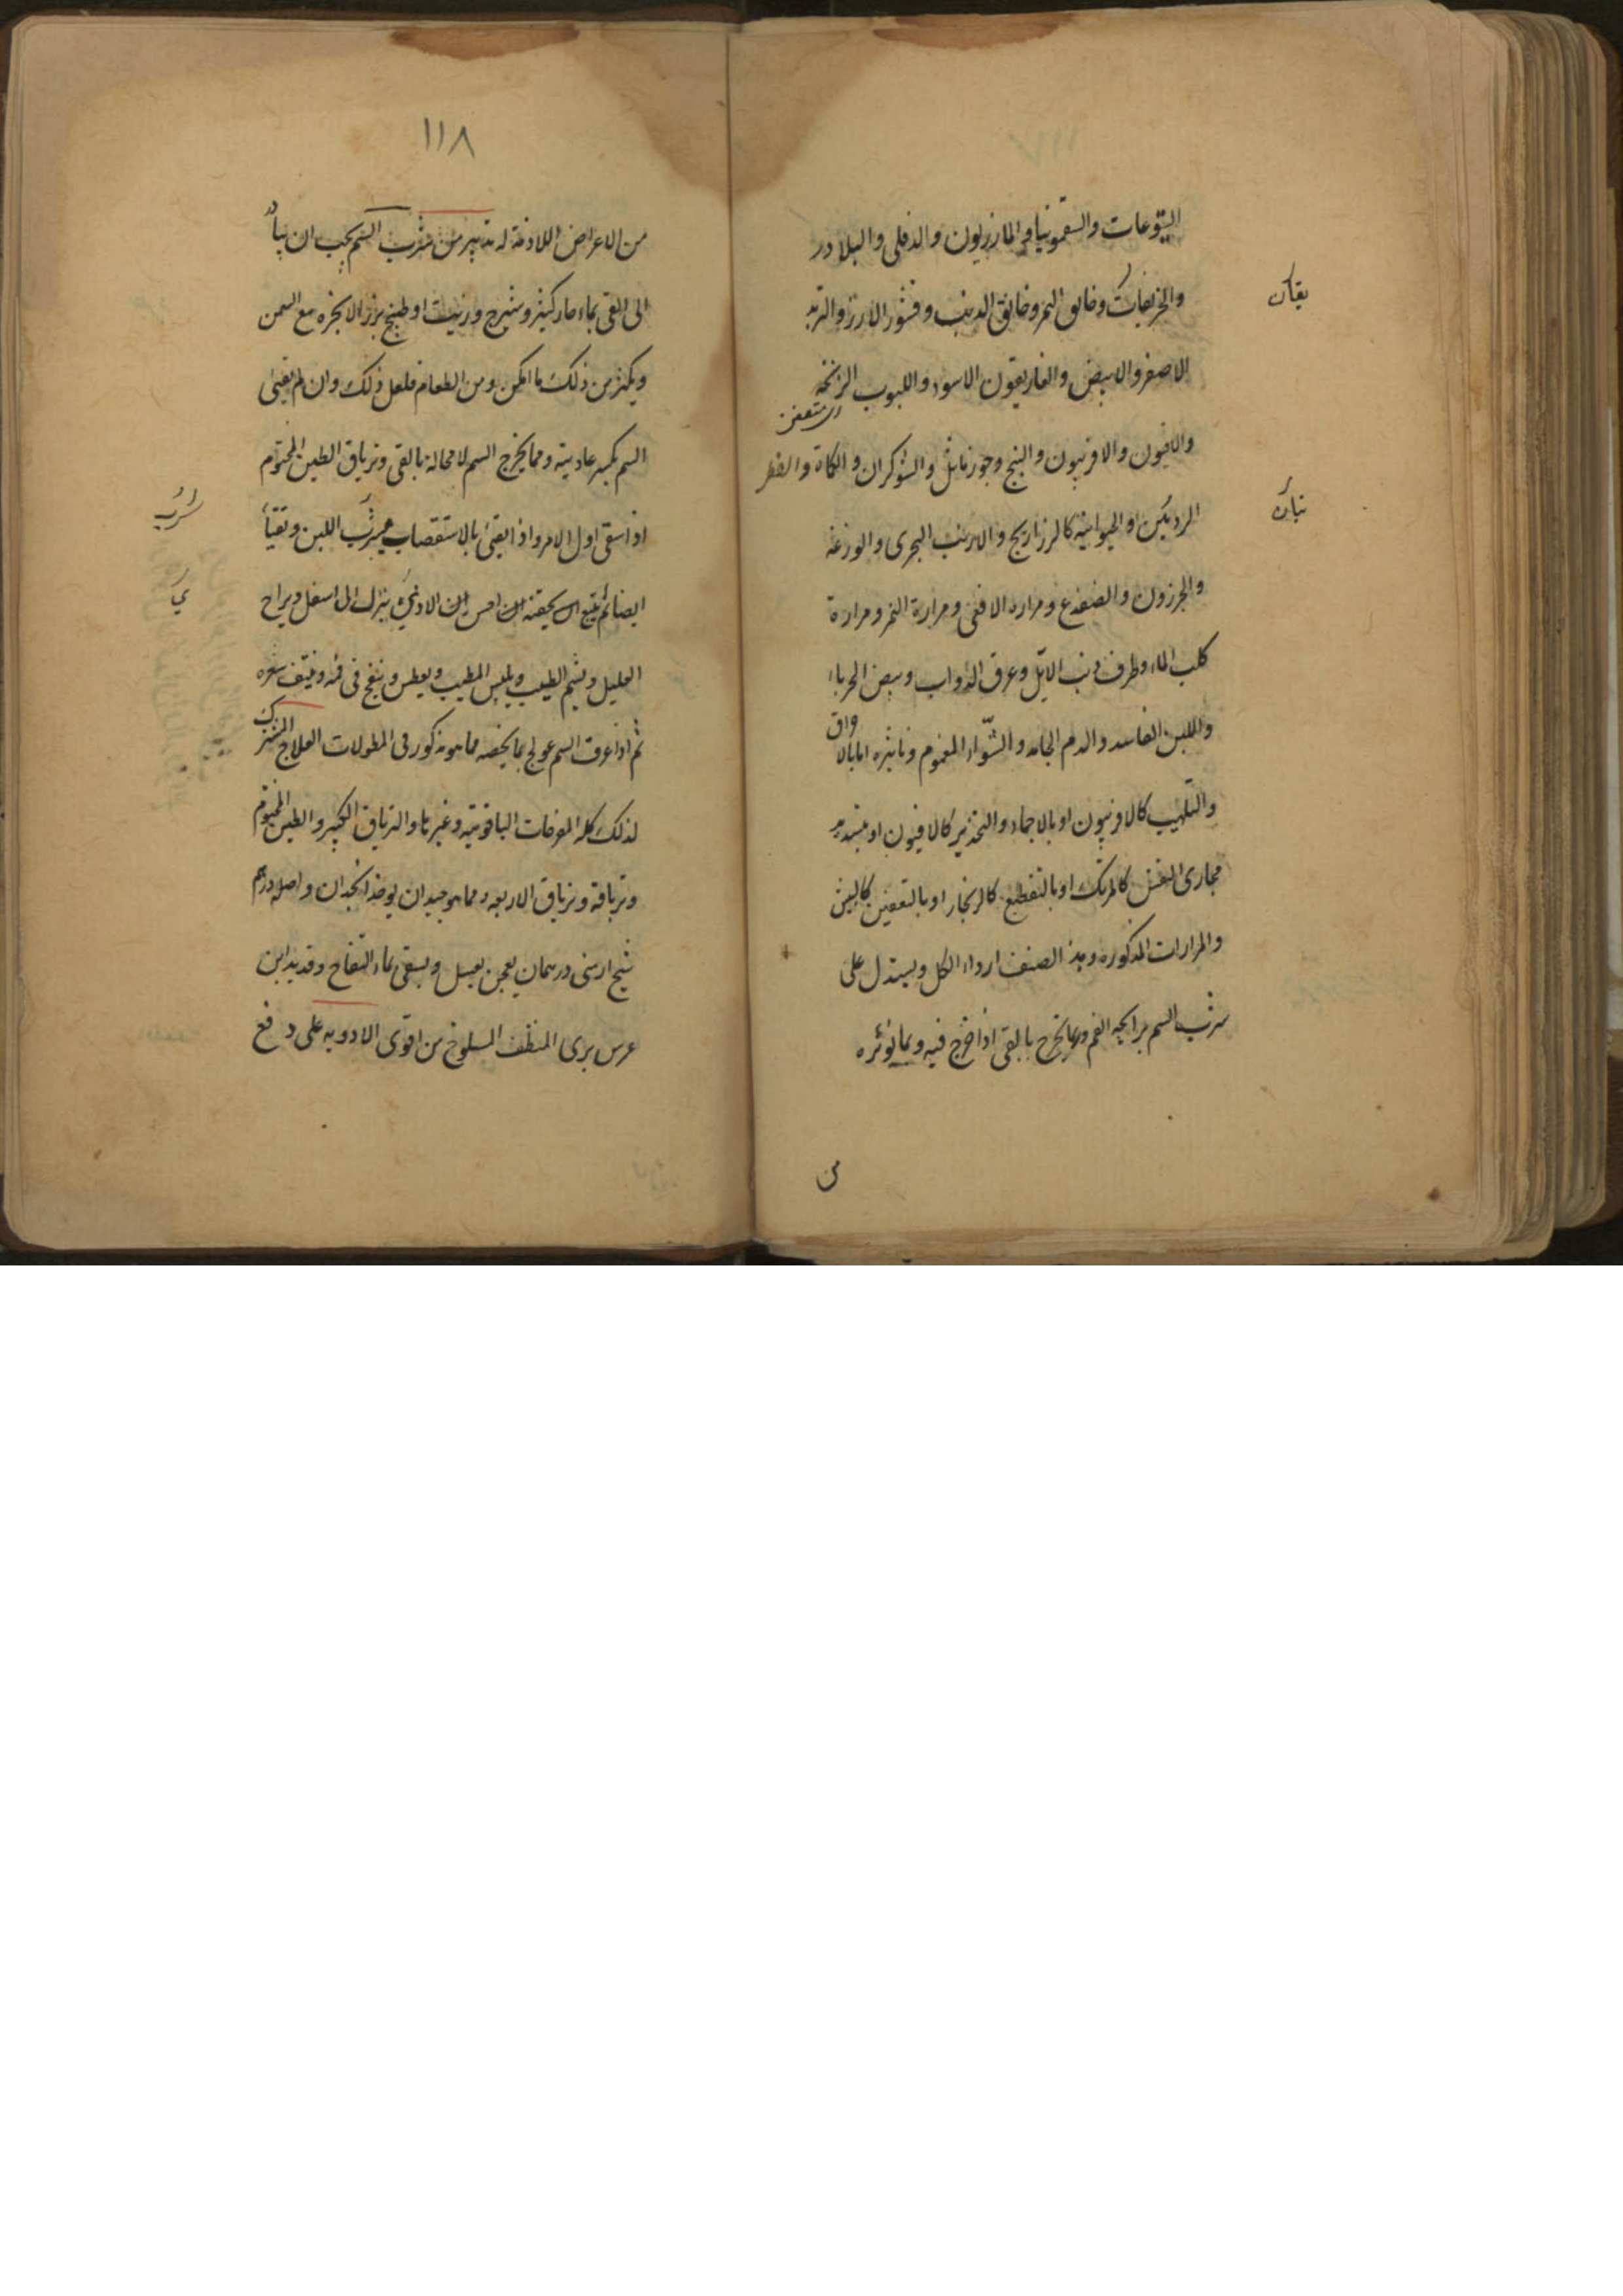 اليتوعات والسقمونيا والمازريون والدفلى والبلادر
والخربقات وخانق النمر وخانق الذئب وقشور الارز والتربد
يقان
الاصفر والابيض والغاريقون الاسود واللبوب الزنخة
اى متعفن
والافيون والافربيون والبنج وجوز ماثل والشوكران والكماة والفطر
الرديئين او الحيوانية كالزراريح والارنب البحرى والوزغة
والحرذون والضفدع ومرارة الافعى ومرارة النمر ومرارة
كلب الماء وطرف ذنب الايّل وعرق الدواب وبيض الحرباء
واللبن الفاسد والدم الجامد والشوّاء المغموم وتاثيره اما بالاحراق
والتلهيب كالافربيون او بالاجماد والتخدير كالافيون او بتسديد
مجارى النفس كالمرتك او بالتقطيع كالزنجار او بالتعفين كالبيش
والمرارات المذكورة وهذا الصنف اردأ الكل ويستدل على
شرب السم برايحة الفم وبما يخرج بالقى اذا خرج فيه وبما تؤثره
من
١١٨
من الاعراض اللازمة له تدبير من شرب السم يجب ان يبادر
الى القى بماء حار كثير وشيرج وزيت او طبيخ بزر الانجرة مع السمن
ويكثر من ذلك ما امكن ومن الطعام فلعل ذلك وان لم يقيئ
السم يكسر عاديته ومما يخرج السم لا محالة بالقى ترياق الطين المختوم
اذا سقى اول الامر واذا تقيئ بالاستقصاء شرب اللبن وتقيأ
ايضا ثم يتبع
ينزل الى اسفل ويراح
العليل ويشم الطيب ويلبس المطيب ويعطس وينفخ فى فمه وينتف شعره
ثم اذا عرف السم عولج بما يخصه مما هو مذكور فى المطولات العلاج المشترك
لذلك كله المفرحات الياقوتية وغيرها والترياق الكبير والطين المختوم
وترياقه وترياق الاربعة ومما هو جيد ان يوخذ انجدان واصله درهم
شيح ارمنى درهمان يعجن بعسل ويسقى بماء التفاح وقديد ابن
عرس برى المنظف المسلوخ من اقوى الادوية على دفع